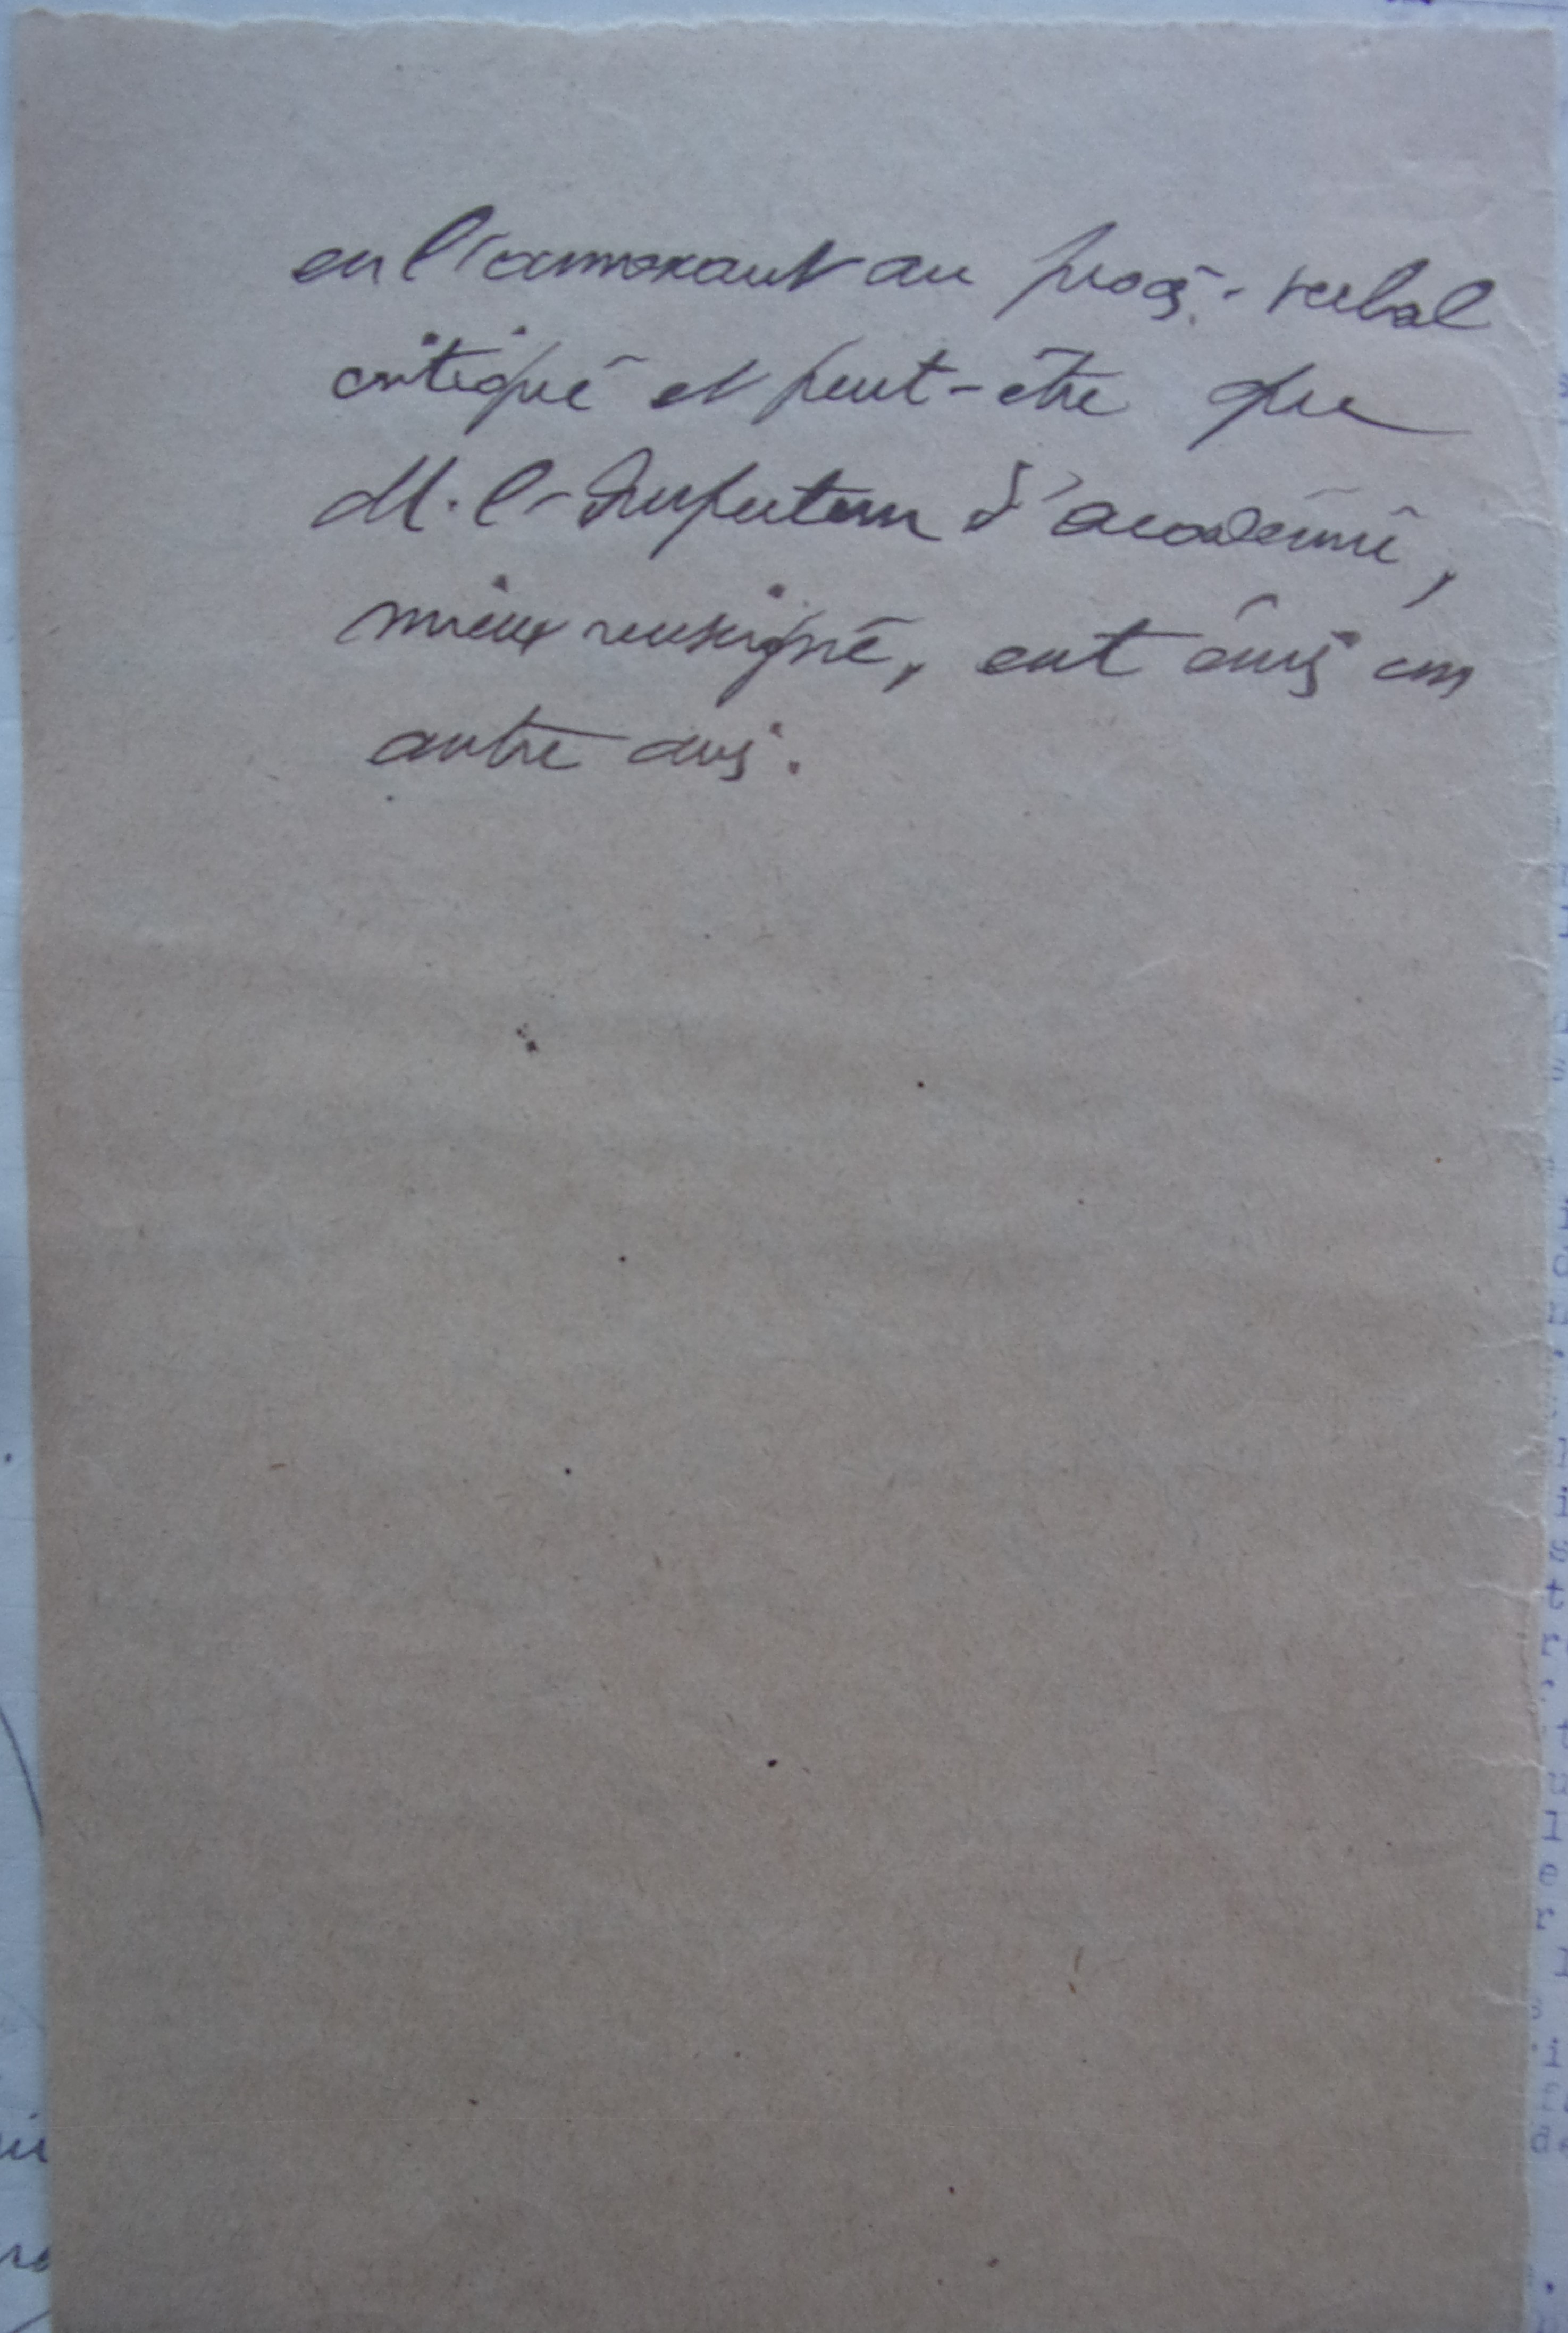 en l'annexant au procès-verbal
critiqué et peut-être que
M. l'Inspecteur d'académie,
mieux renseigné, eut émis un
autre avis.